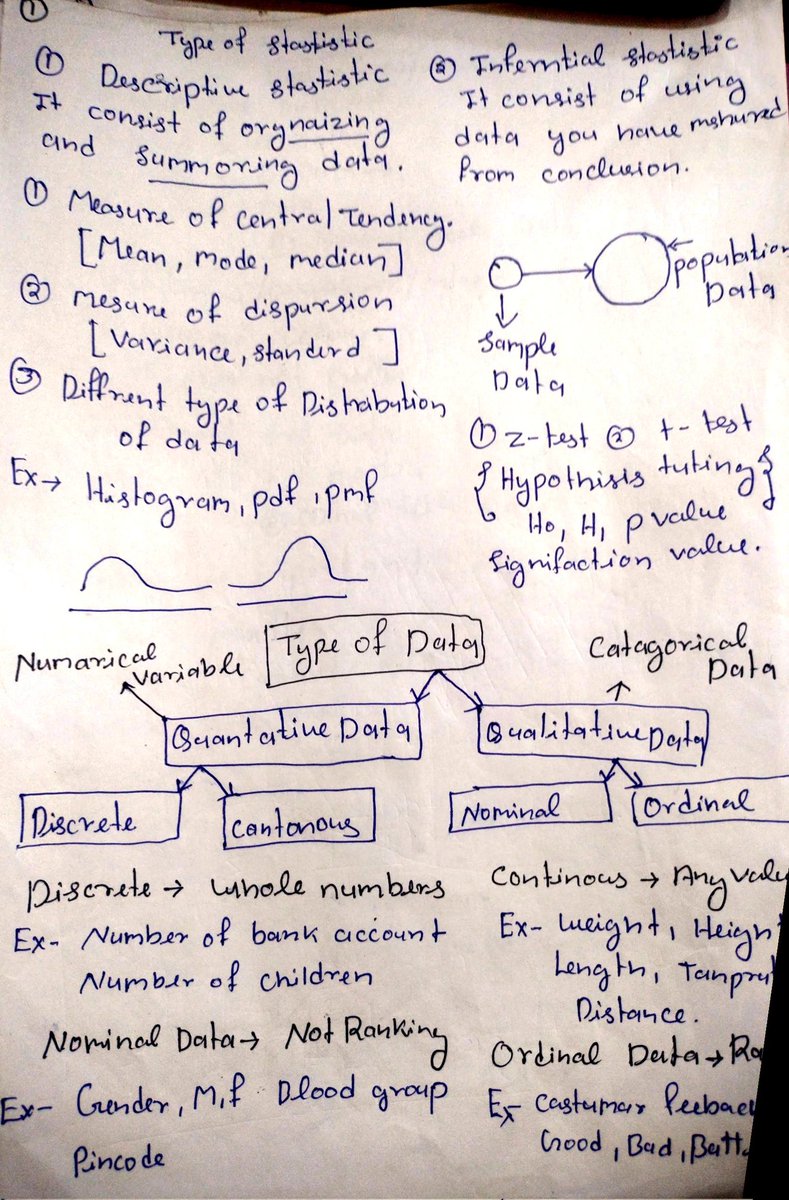 ①
Type of stastistic
① Descriptive stastistic
It consist of orgnaizing
and summoring data.
① Measure of central Tendency.
[Mean, mode, median]
② mesure of dispursion
[variance, standerd ]
③ Diffrent type of Distrabution
of data
Ex→ Histogram, pdf, pmf
② Inferntial stastistic
It consist of using
data you have meshured
from conclusion.
population
Data
Sample
Data
① z-test ② t-test
{ Hypothisis tuting }
Ho, H, p value
signifaction value.
Type of Data
Numarical
variable
Catagorical
Data
Quantative Data
Qualitative Data
Discrete
Cantonous
Nominal
Ordinal
Discrete → Whole numbers
Ex- Number of bank account
Number of children
Continous → Any valu
Ex- Weight, Heigh
Length, Tanprat
Distance.
Nominal Data → Not Ranking
Ex- Gender, M, f Blood group
Pincode
Ordinal Data → Ra
Ex- Castumar feebac
Good, Bad, Batt